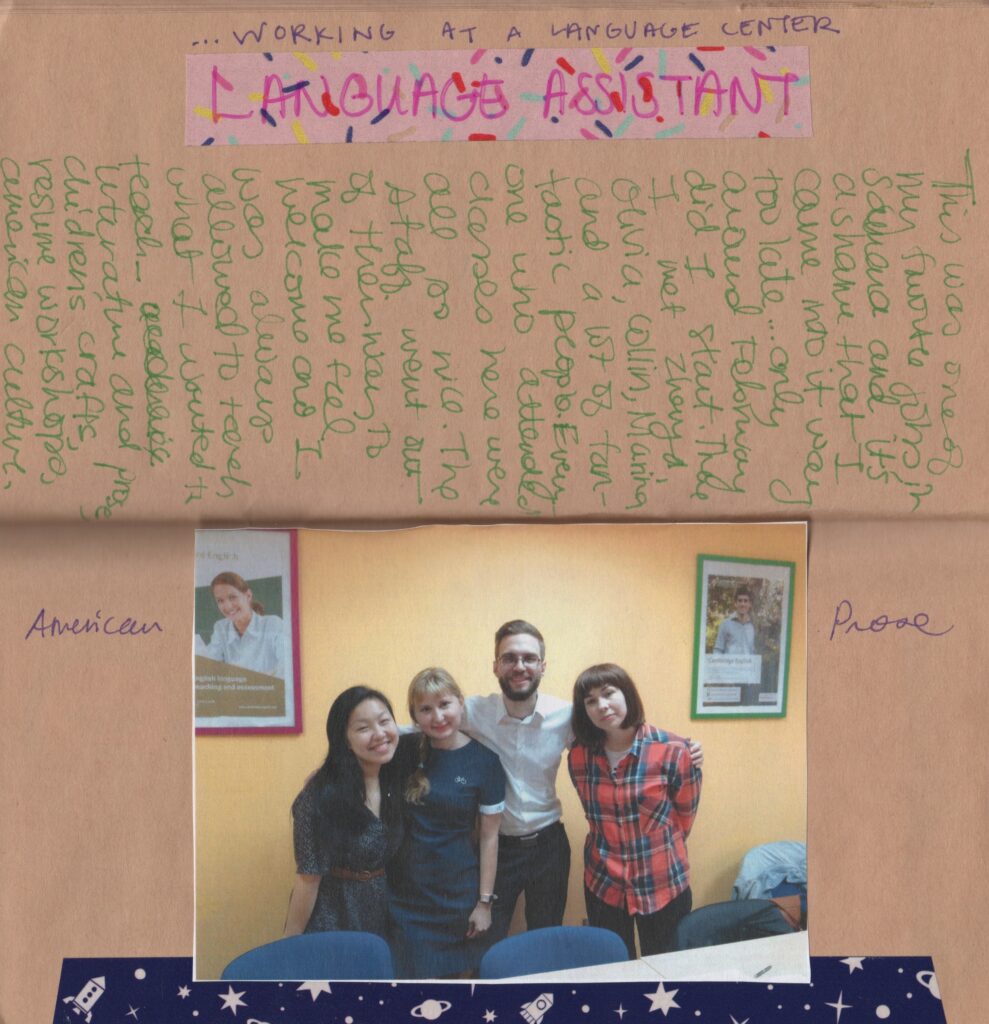 ...WORKING AT A LANGUAGE CENTER
LANGUAGE ASSISTANT
This was one of
my favorite jobs in
Samara and it's
a shame that I
came into it way
too late... only
around February
did I start. The
I met Zhenya
Olivia, Collin, Marina
and a lot of fan-
tastic people. Every
one who attended
classes here were
all so nice. The
staff went out
of their way to
make me feel
welcome and I
was always
allowed to teach
what I wanted to
teach—
literature and prose,
childrens crafts,
resume workshops,
american culture.
American
Prose
English
English language
and assessment
Cambridge English